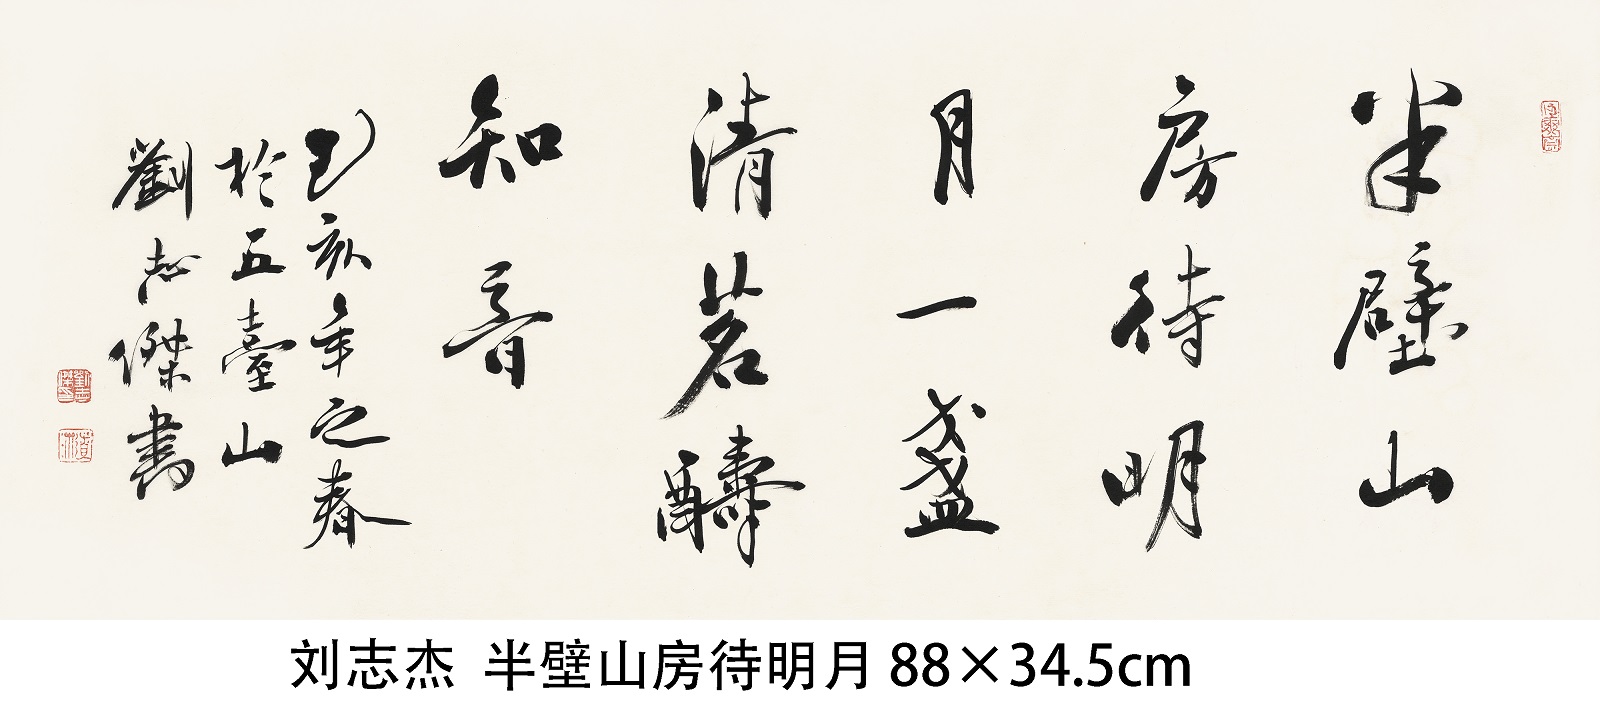 半壁山
房待明
月一盏
清茗醻
知音
己亥年之春
於五臺山
劉志傑書
刘志杰 半壁山房待明月 88×34.5cm